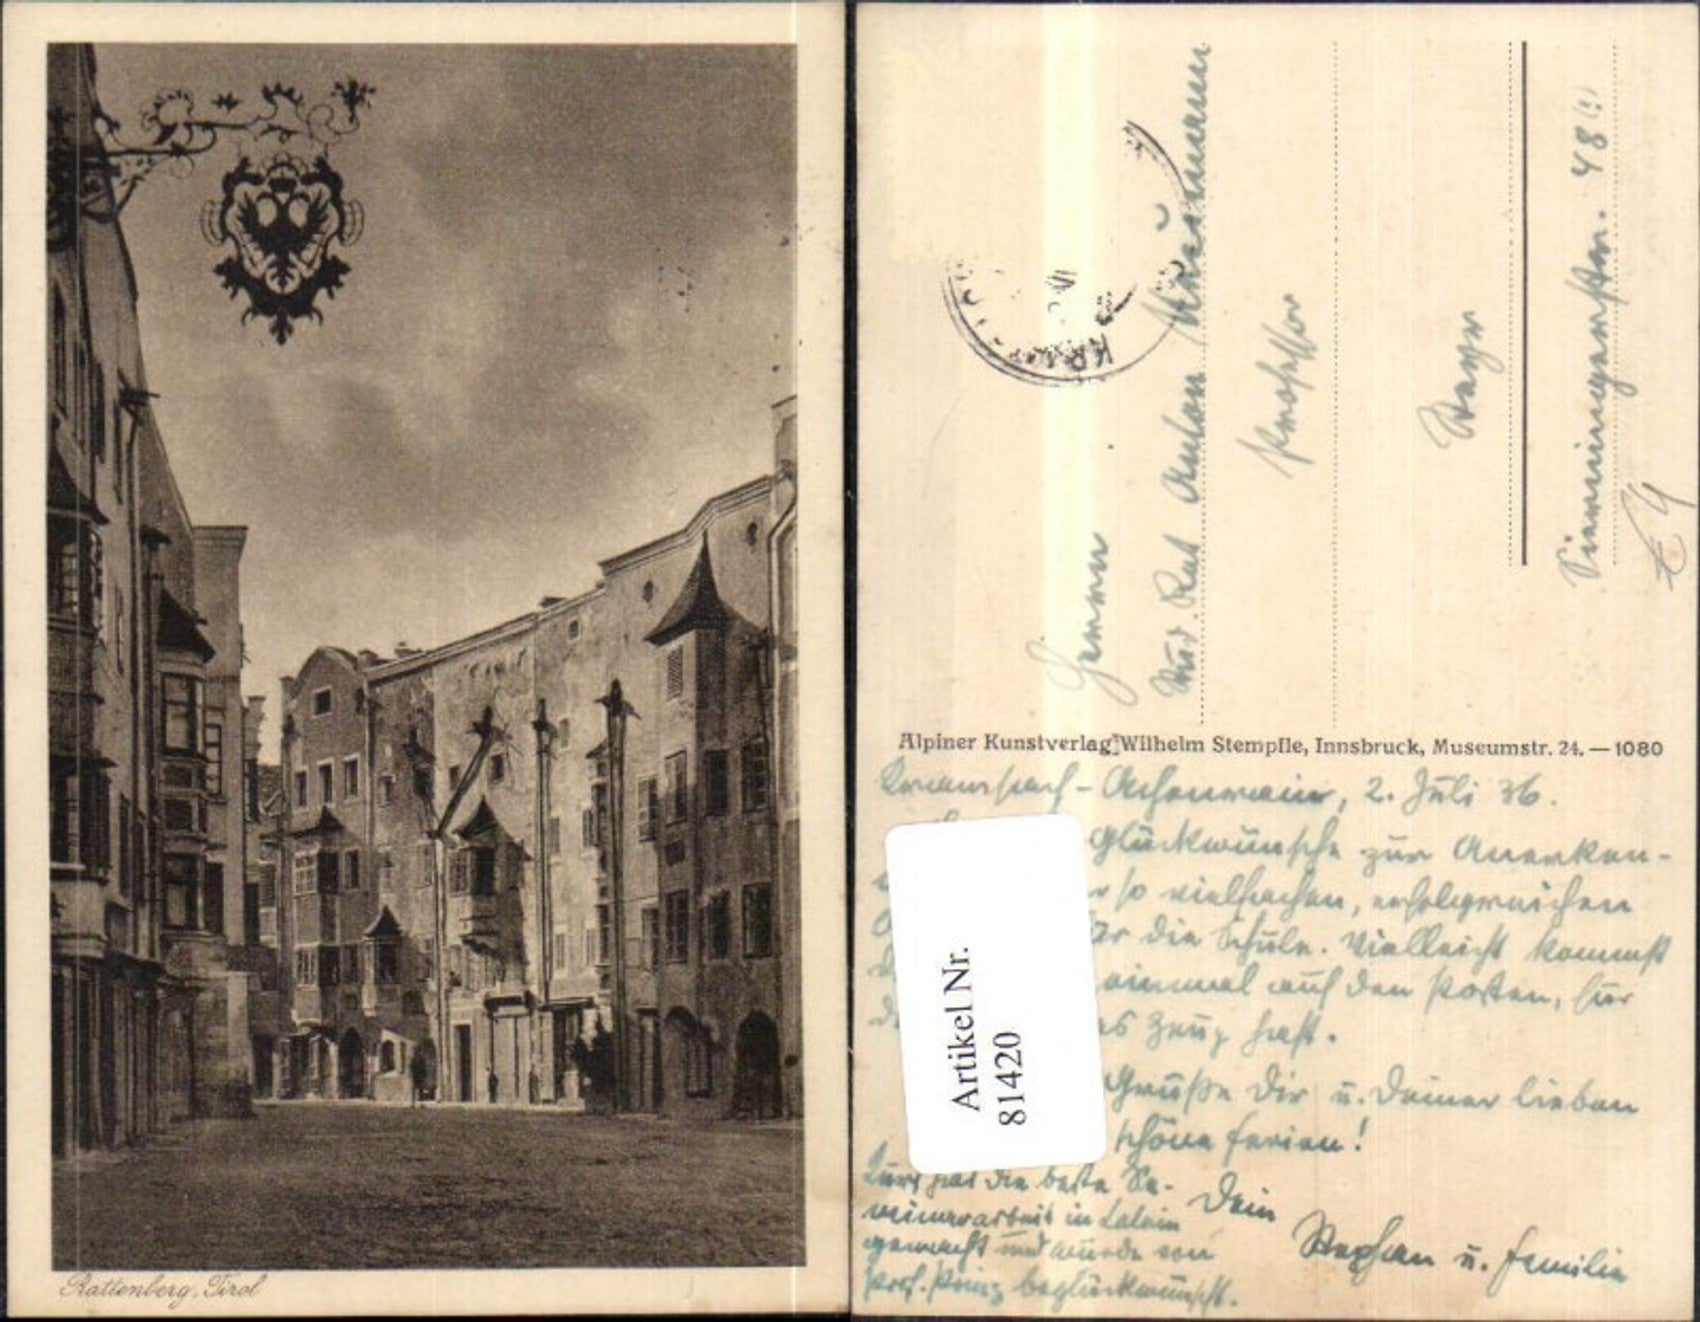 Rattenberg, Tirol
Herrn
Stud. Rat Anton
Professor
Steyr
48
Alpiner Kunstverlag Wilhelm Stempfle, Innsbruck, Museumstr. 24. — 1080
Kramsach - Achenrain, 2. Juli 36.
Glückwünsche zur Anerken-
so vielfachen, erfolgreichen
für die Schule. Vielleicht kommst
einmal auf den Posten, für
das Zeug hast.
Grüße Dir u. Deiner lieben
schöne Ferien!
hat die beste Se-
minararbeit in Latein
gemacht und wurde von
Prof. Prinz beglückwünscht.
Dein
Stephan u. Familie
Artikel Nr.
81420